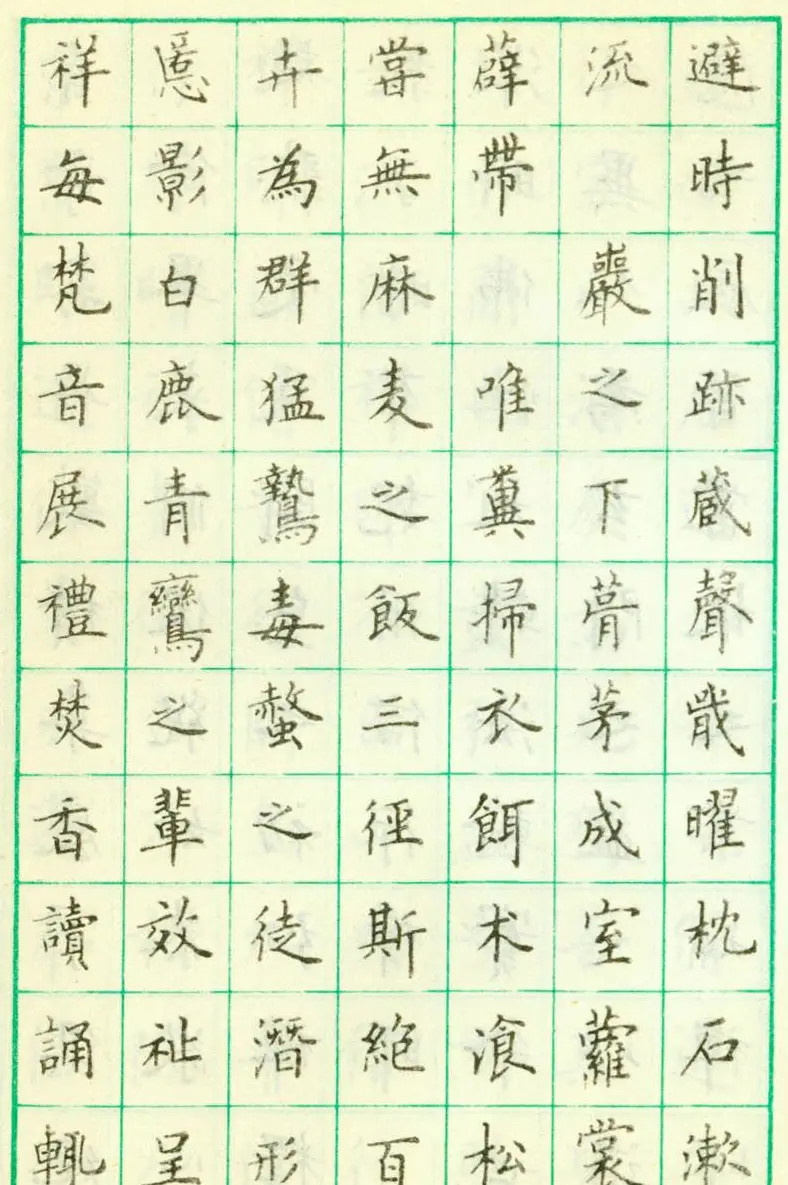 避時削跡蔵聲戢曜枕石漱
流巖之下葺茅成室蘿裳
薜帶唯糞掃衣餌术飡松
甞無麻麦之飯三徑斯絕百
卉為群猛鷙毒螫之徒潛形
慝影白鹿青鸞之輩效祉呈
祥每梵音展禮焚香讀誦輙